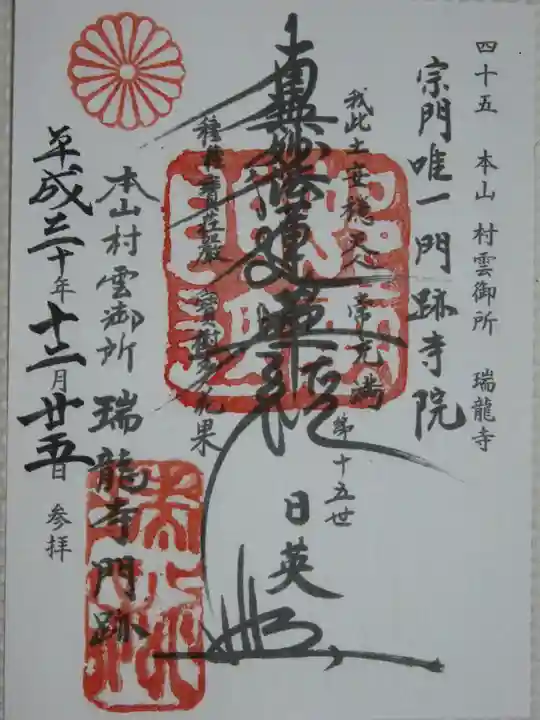 四十五 本山 村雲御所 瑞龍寺
宗門唯一門跡寺院
我此土安穏 天人常充満
南無妙法蓮華経
種種寶荘厳 寶樹多花果
第十五世
日英
本山村雲御所 瑞龍寺門跡
平成三十年十二月廿五日 参拝